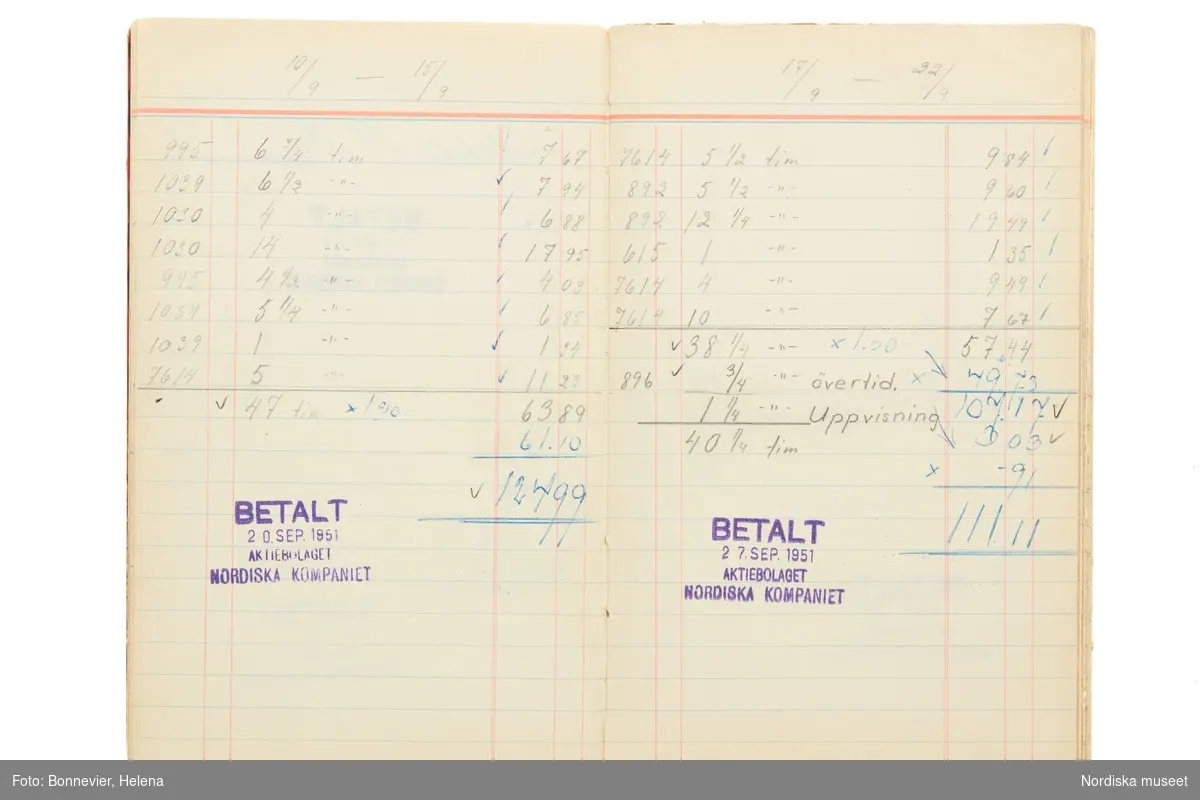 10/9 — 15/9
995 6 3/4 tim 7 67
1039 6 1/2 -"- ✓ 7 94
1030 4 -"- 6 88
1030 14 -"- 17 95
995 4 1/2 -"- 4 03
1039 5 1/4 -"- 6 85
1039 1 -"- ✓ 1 34
7614 5 -"- ✓ 11 23
✓ 47 tim × 1.30. 63 89
61.10
✓ 124 99
BETALT
20. SEP. 1951
AKTIEBOLAGET
NORDISKA KOMPANIET
17/9 — 22/9
7614 5 1/2 tim 9 84
892 5 1/2 -"- 9 60
892 12 1/4 -"- 19 49
615 1 -"- 1 35
7614 4 -"- 9 49
7614 10 -"- 7 67
✓ 38 1/4 -"- × 1.30 57.44
896 ✓ 3/4 -"- övertid. × 49 73
1 1/4 -"- Uppvisning 107.17 ✓
40 1/4 tim 3 03 ✓
× -91
111.11
BETALT
27. SEP. 1951
AKTIEBOLAGET
NORDISKA KOMPANIET
Foto: Bonnevier, Helena
Nordiska museet